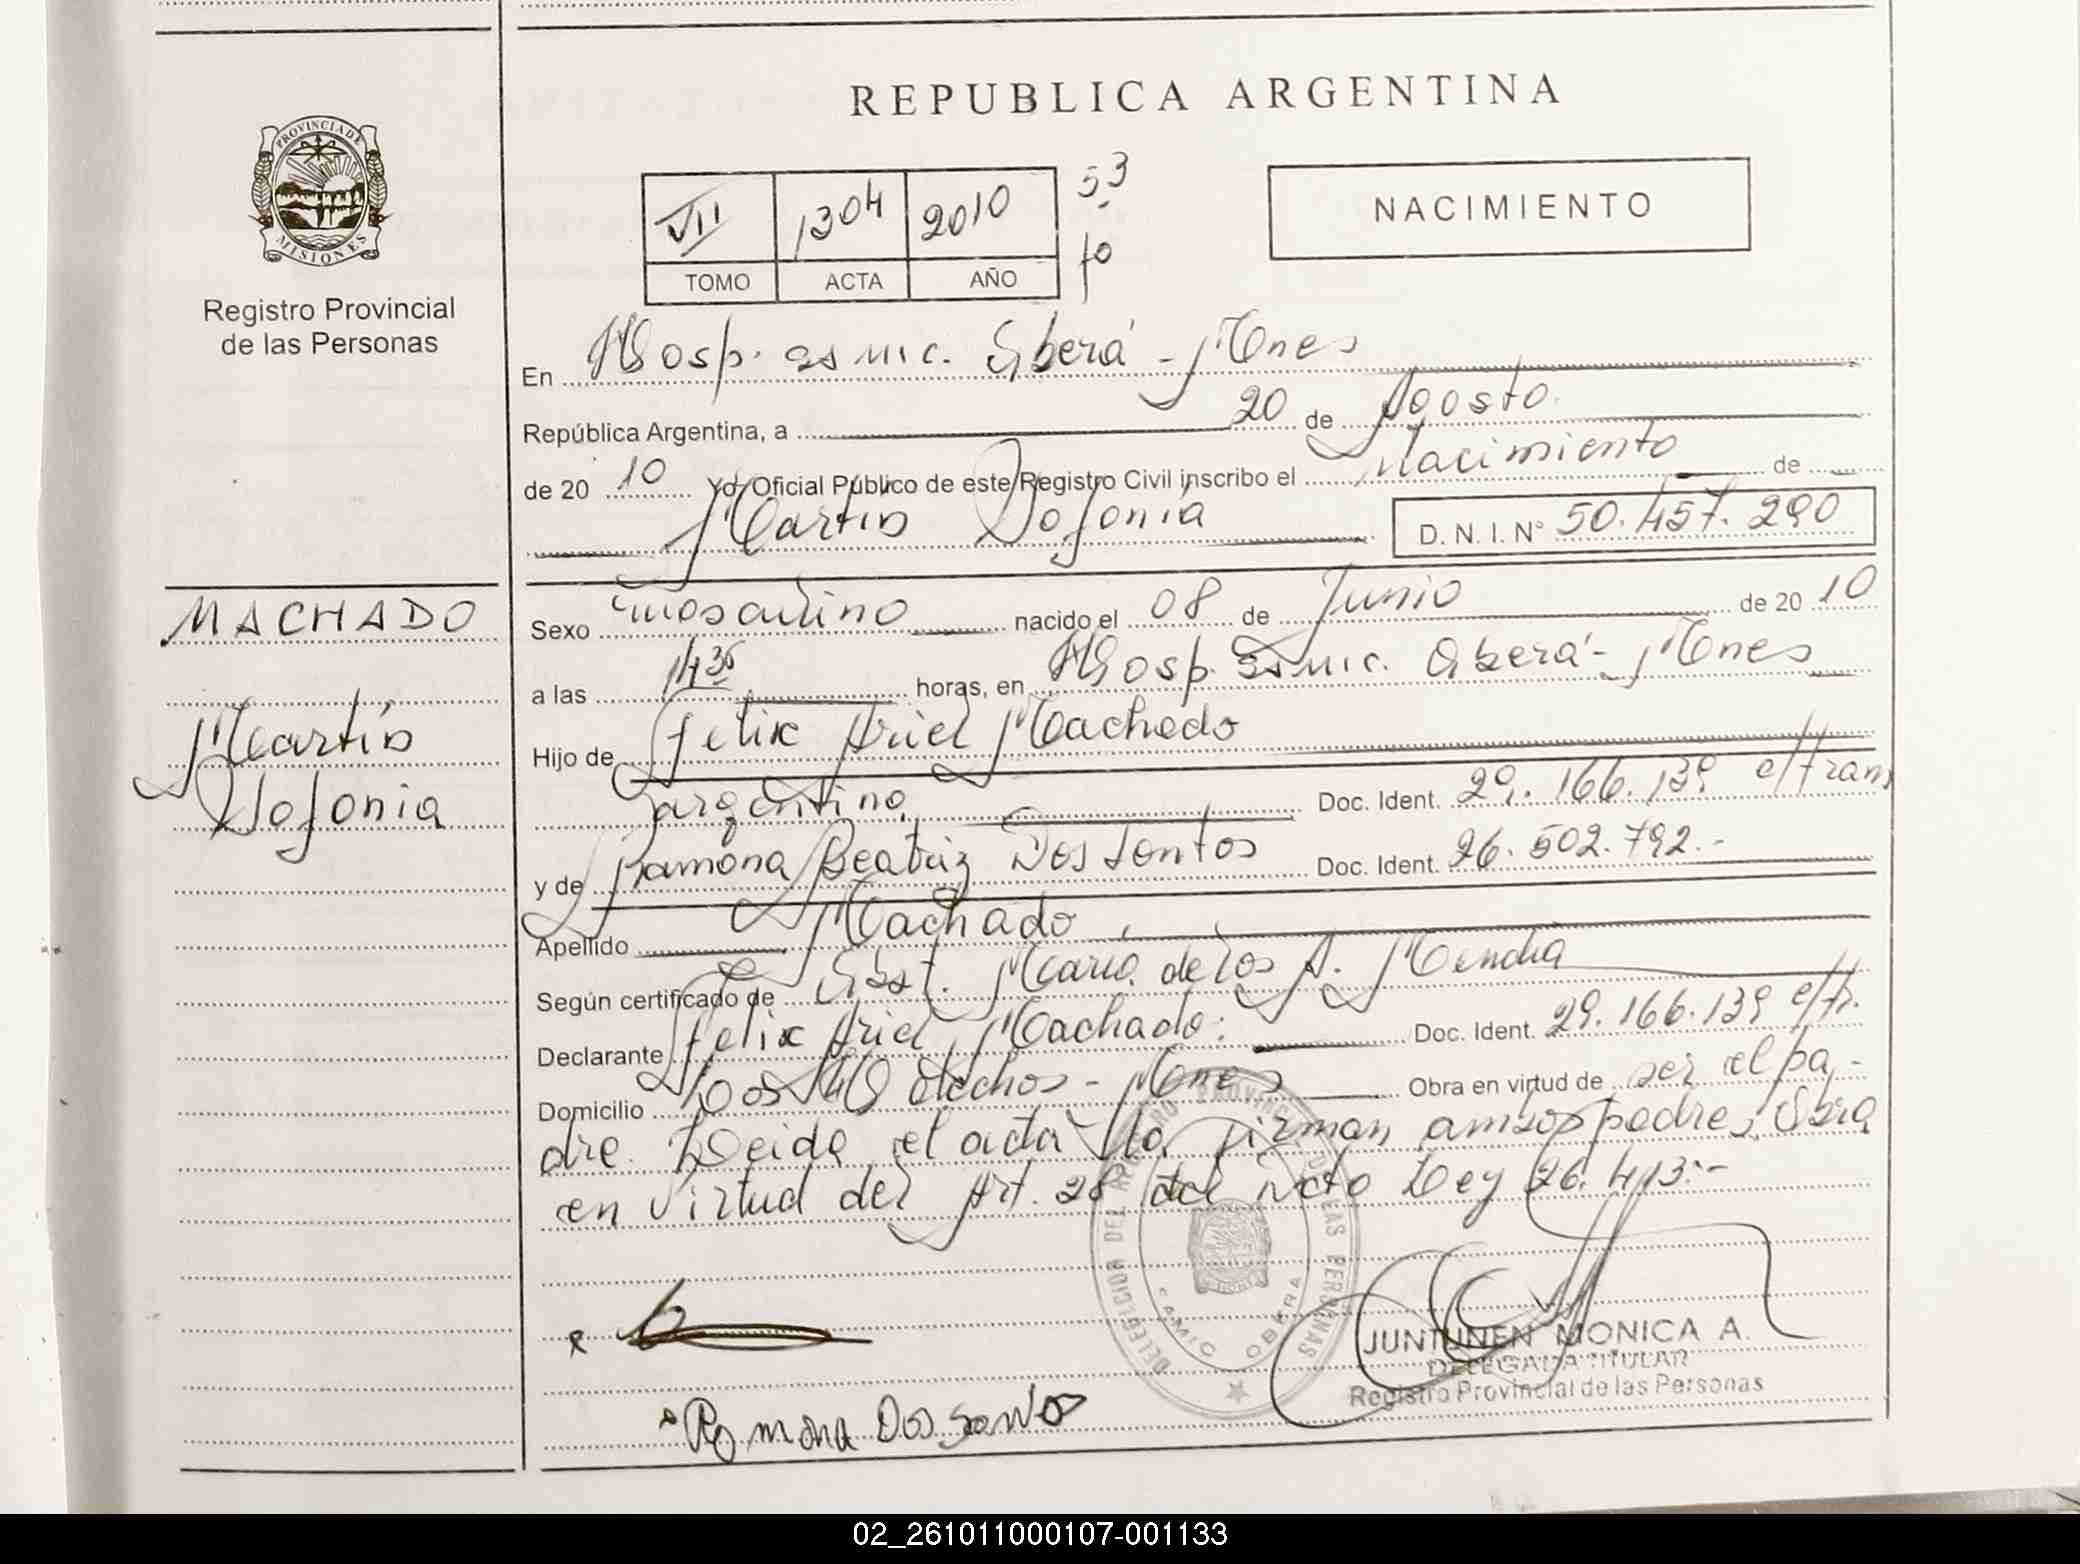 REPUBLICA ARGENTINA
PROVINCIA DE
MISIONES
Registro Provincial
de las Personas
VII 1304 2010
TOMO ACTA AÑO
53
fo
NACIMIENTO
En Hosp. Oberá - Mnes
República Argentina, a 20 de Agosto
de 20 10 Yo, Oficial Público de este Registro Civil inscribo el Nacimiento de
Martín Sofonía
D. N. I. Nº 50.457.290
MACHADO
Martín
Sofonia
Sexo masculino nacido el 08 de Junio de 20 10
a las horas, en Hosp. Oberá - Mnes
Hijo de Felix Ariel Machado
argentino Doc. Ident. 29.166.139
y de Ramona Beatriz Dos Santos Doc. Ident. 26.502.792.-
Apellido Machado
Según certificado de Obst. María de los A. Mendia
Declarante Felix Ariel Machado. Doc. Ident. 29.166.139
Domicilio - Mnes Obra en virtud de ser el pa-
dre. Leida el acta la firman ambos padres, Obra
en virtud del Art. 28 del Ley 26.413.-
DELEGACION DEL REGISTRO PROVINCIAL DE LAS PERSONAS
OBERA
JUNTUNEN MONICA A.
DELEGADA TITULAR
Registro Provincial de las Personas
Romona Dos Santos
02_261011000107-001133